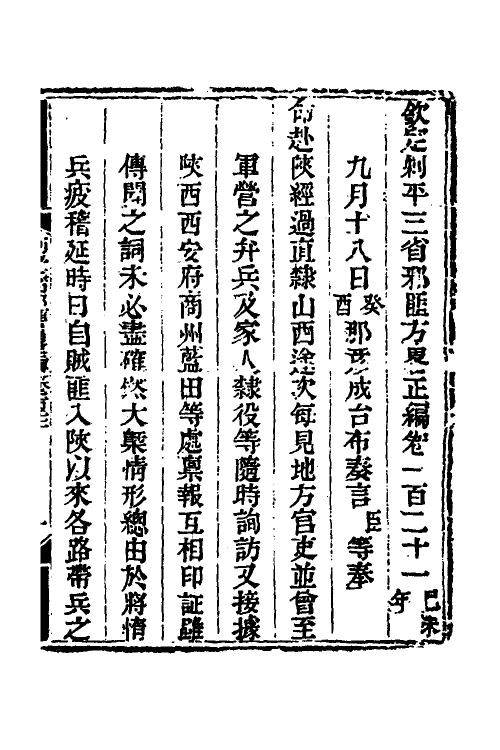 欽定剿平三省邪匪方畧正編卷二百二十一己未年
九月十八日癸酉那彥成台布奏言臣等奉
命赴陝經過直隸山西途次每見地方官吏並曾至
軍營之弁兵及家人隸役等隨時詢訪又接據
陝西西安府商州藍田等處稟報互相印証雖
傳聞之詞未必盡確然大槩情形總由於將惰
兵疲稽延時日自賊匪入陝以來各路帶兵之